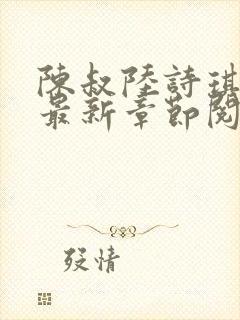 陳叔陸詩琪
最新章節閱
殺情